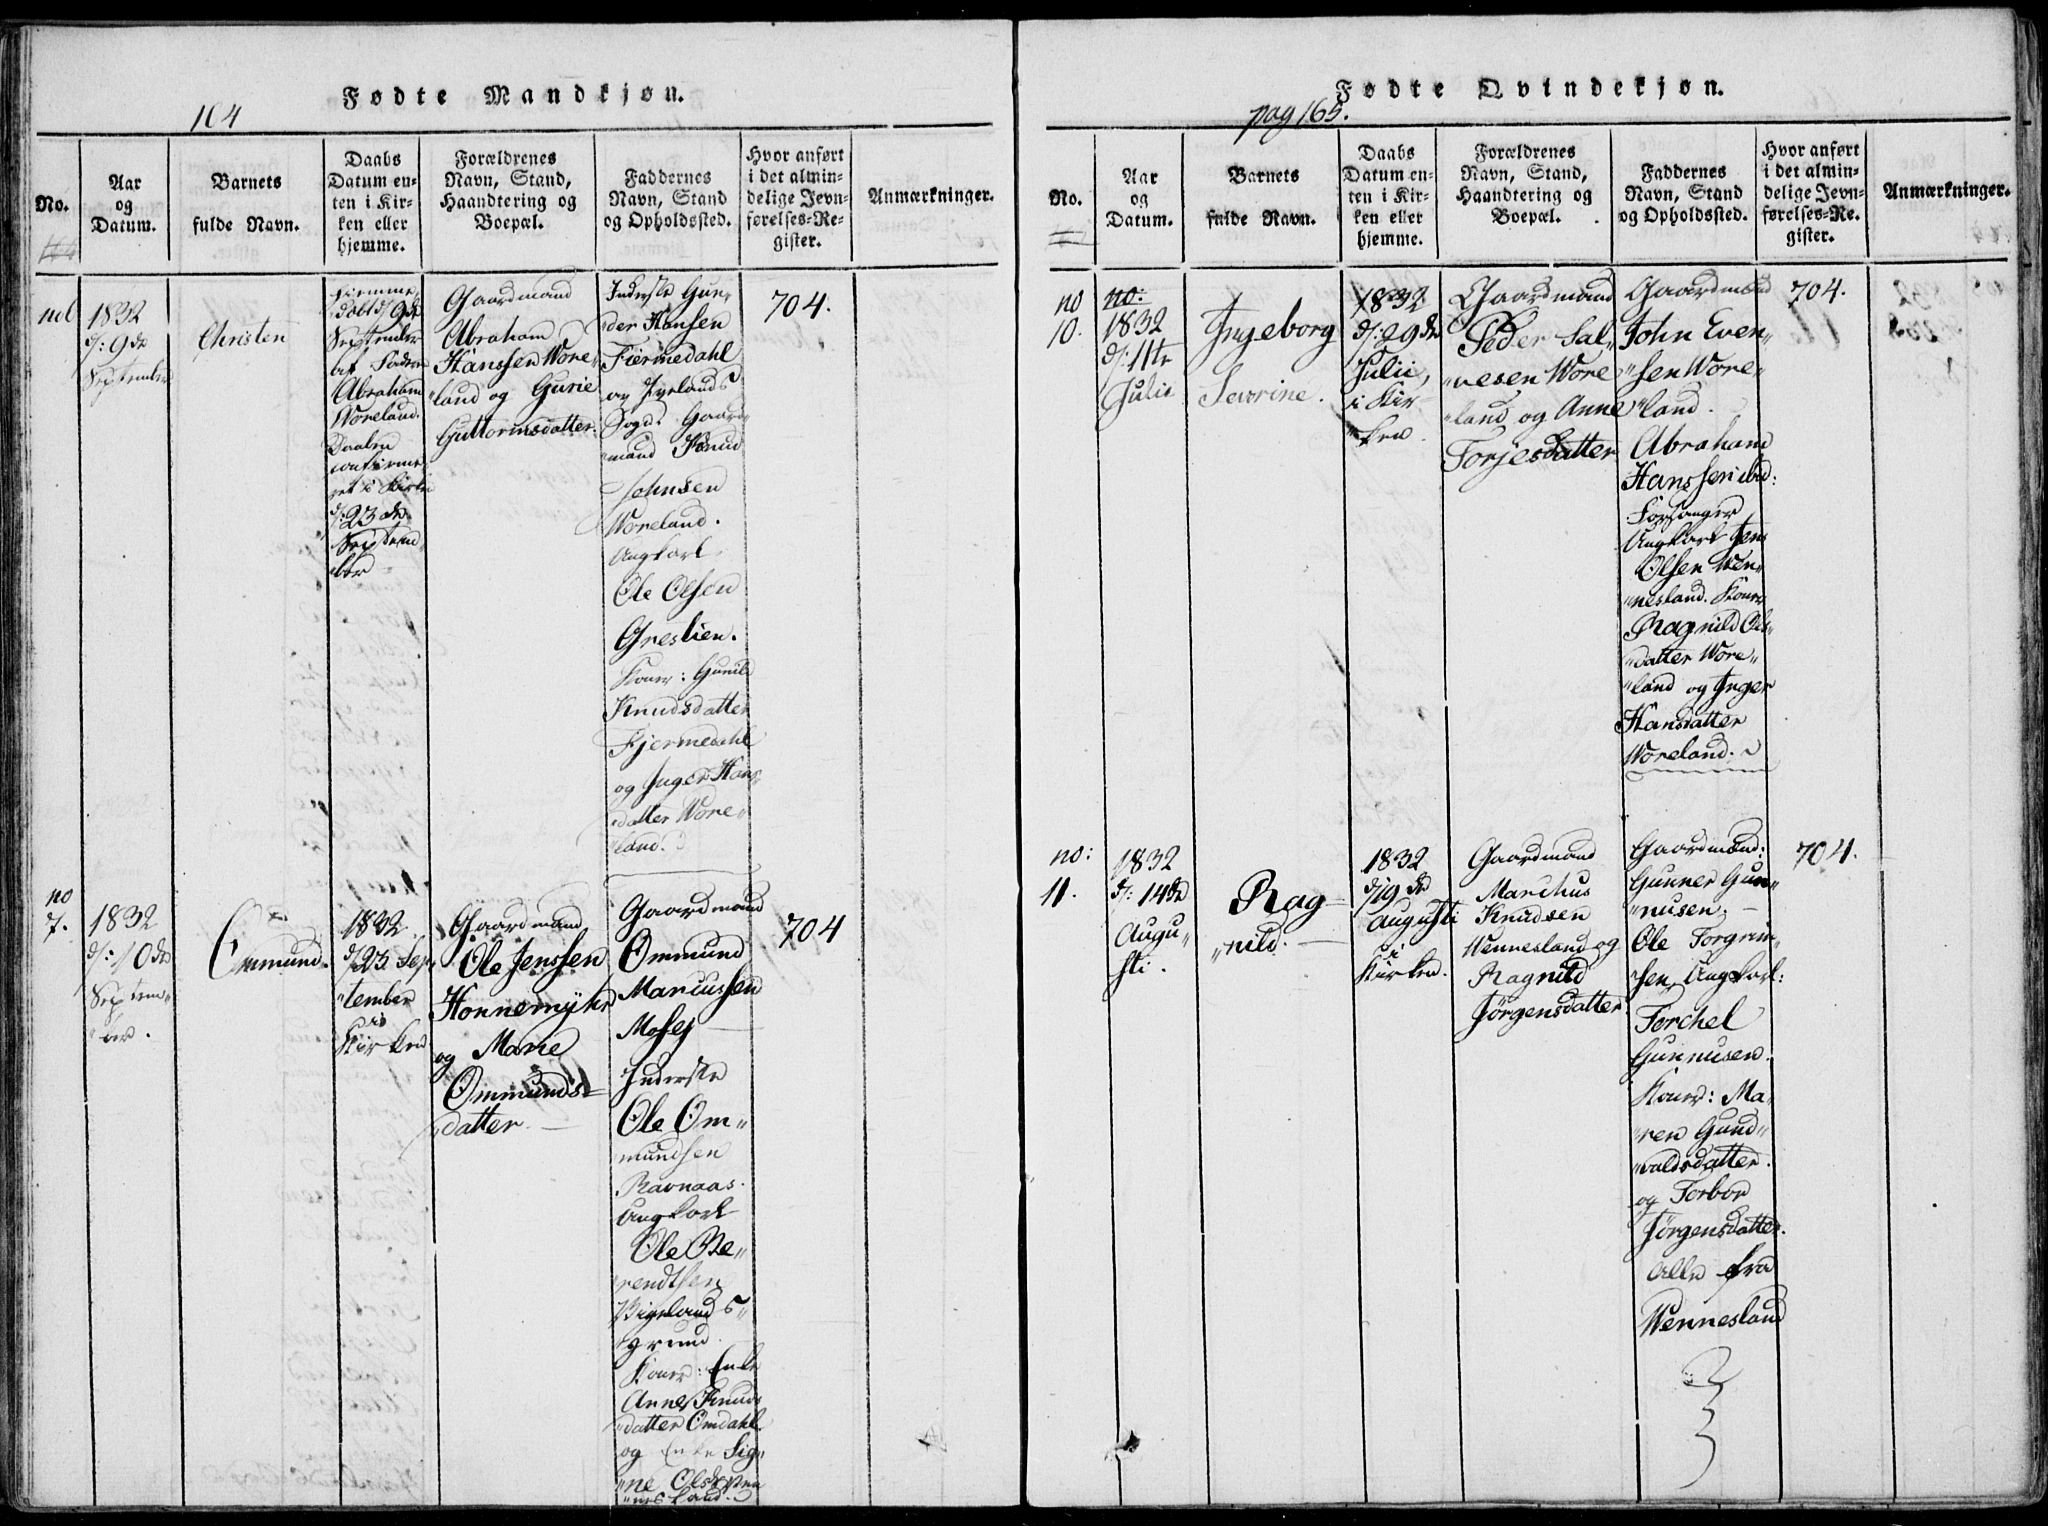 Fødte Mandkjøn.
164
No.
Aar
og
Datum.
Barnets
fulde Navn.
Daabs
Datum en-
ten i Kir-
ken eller
hjemme.
Forældrenes
Navn, Stand,
Haandtering og
Boepæl.
Faddernes
Navn, Stand
og Opholdssted.
Hvor anført
i det almin-
delige Jevn-
førelses-Re-
gister.
Anmærkninger.
1832
d: 9de
September
Christen
Hiemme
døbt d/9de
September
af Faderen
Abraham
Woreland.
Daaben
confirme-
ret i Kirken
d/23de
Septem-
ber
Gaardmand
Abraham
Hanssen Wore-
land og Gurie
Guttormsdatter.
Inderste Gun-
der Hansen
Fiermedahl
av Ivelands
Sogn. Gaard-
mand Knud
Johnsen
Woreland.
Ungkarl
Ole Olsen
Greslien.
Koner: Gunild
Knudsdatter
Fjermedahl
og Inger Hans-
datter Wore-
land.
704.
no
7.
1832
d: 10de
Septem-
ber.
Ommund.
1832.
d/23. Sep-
tember
i
Kirken
Gaardmand
Ole Jenssen
Honnemyhr
og Marie
Ommunds-
datter.
Gaardmand
Ommund
Marcussen
Mosej
Inderste
Ole Om-
mundsen
Ravnaas.
Ungkarl
Ole Be-
rendtsen
Wigelands-
grund.
Koner: Enke
Anne Knuds
datter Omdahl
og Enke Sig-
ne Olsd. Wen
nesland.
704
Fødte Qvindekjøn.
pag 165.
No.
Aar
og
Datum.
Barnets
fulde Navn.
Daabs
Datum en-
ten i Kir-
ken eller
hjemme.
Forældrenes
Navn, Stand,
Haandtering og
Boepæl.
Faddernes
Navn, Stand
og Opholdssted.
Hvor anført
i det almin-
delige Jevn-
førelses-Re-
gister.
Anmærkninger.
no
10.
no:
1832
d: 11te
Julii
Ingeborg
Severine.
1832
d: 29de
Julii,
i Kir-
ken.
Gaardmand
Peder Sal-
vesen Wore
land og Anne
Torjesdatter
Gaardmænd
John Even-
sen Wore-
land.
Abraham
Hanssen ibid:
Forsanger
Ungkarl Jens
Olsen Wen-
nesland. Koner
Ragnild Ols-
datter Wore-
land og Inger
Hansdatter
Woreland.
704.
no:
11.
1832
d: 14de
Augu-
sti.
Rag-
nild.
1832
d/19de
Augusti
i
Kirken.
Gaardmand
Marchus
Knudsen
Wennesland og
Ragnild
Jörgensdatter
Gaardmænd:
Gunner Gun-
nusen.
Ole Torgrim-
sen, Ungkarl:
Torchel
Gunnusen.
Koner: Ma-
ren Gund-
valdsdatter.
og Torbor
Jörgensdatter.
Alle fra
Wennesland
704.